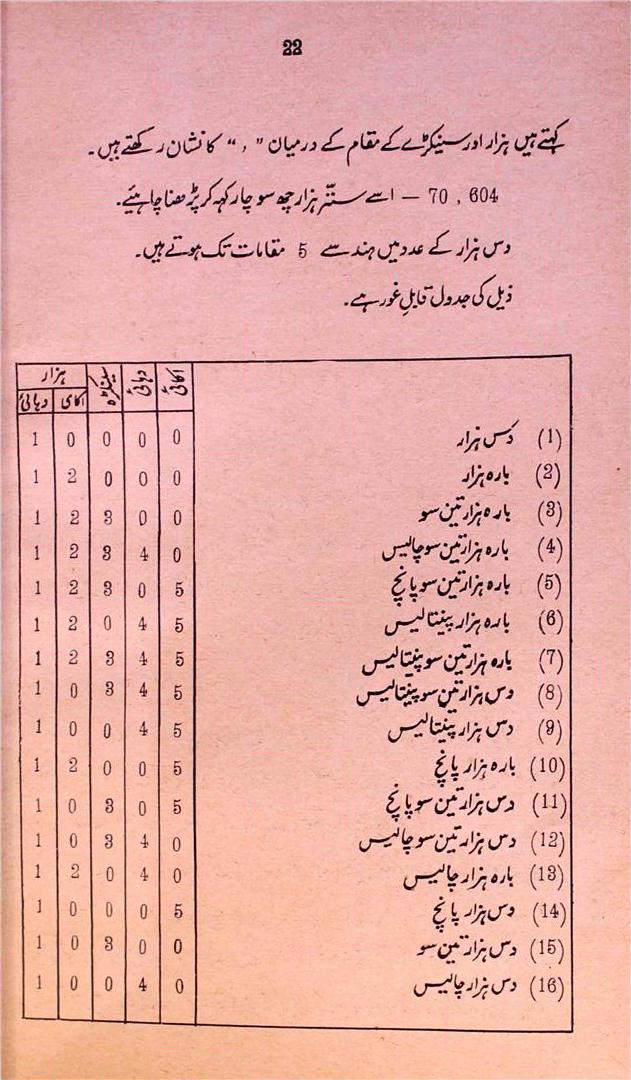 22
کہتے ہیں ہزار اور سینکڑے کے مقام کے درمیان " , " کا نشان رکھتے ہیں۔
70 , 604 — اسے ستّر ہزار چھ سو چار کہہ کر پڑھنا چاہئیے۔
دس ہزار کے عدد میں ہندسے 5 مقامات تک ہوتے ہیں۔
ذیل کی جدول قابلِ غور ہے۔
اکائی دہائی سینکڑہ ہزار
اکای دہائی
(1) دس ہزار 0 0 0 0 1
(2) بارہ ہزار 0 0 0 2 1
(3) بارہ ہزار تین سو 0 0 3 2 1
(4) بارہ ہزار تین سو چالیس 0 4 3 2 1
(5) بارہ ہزار تین سو پانچ 5 0 3 2 1
(6) بارہ ہزار پینتالیس 5 4 0 2 1
(7) بارہ ہزار تین سو پینتالیس 5 4 3 2 1
(8) دس ہزار تین سو پینتالیس 5 4 3 0 1
(9) دس ہزار پینتالیس 5 4 0 0 1
(10) بارہ ہزار پانچ 5 0 0 2 1
(11) دس ہزار تین سو پانچ 5 0 3 0 1
(12) دس ہزار تین سو چالیس 0 4 3 0 1
(13) بارہ ہزار چالیس 0 4 0 2 1
(14) دس ہزار پانچ 5 0 0 0 1
(15) دس ہزار تین سو 0 0 3 0 1
(16) دس ہزار چالیس 0 4 0 0 1